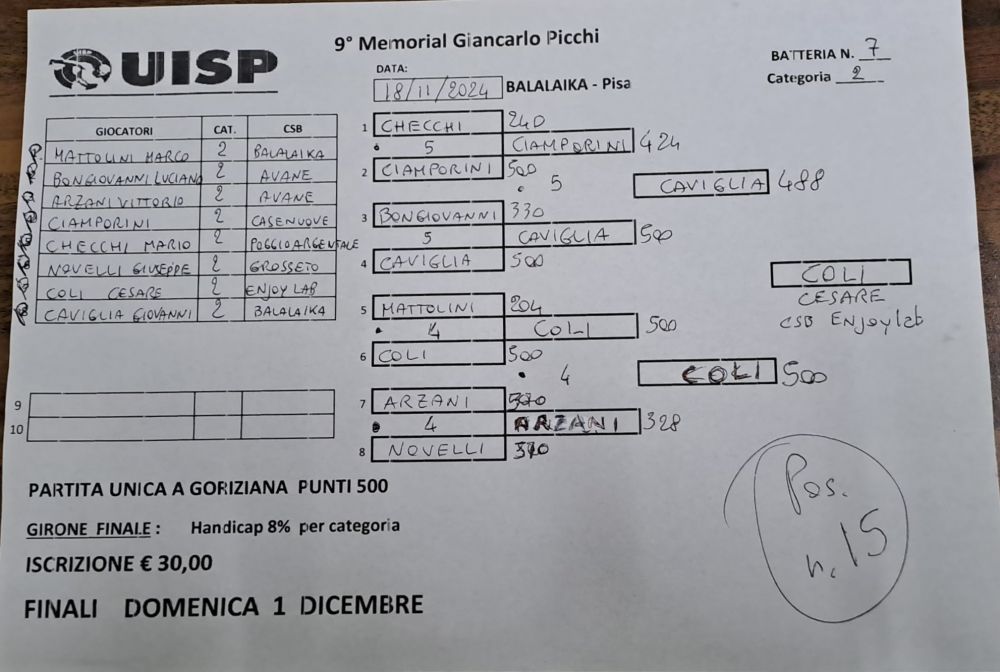 UISP
9° Memorial Giancarlo Picchi
DATA:
18/11/2024 BALALAIKA - Pisa
BATTERIA N. 7
Categoria 2
GIOCATORI CAT. CSB
MATTOLINI MARCO 2 BALALAIKA
BONGIOVANNI LUCIANO 2 AVANE
ARZANI VITTORIO 2 AVANE
CIAMPORINI 2 CASENUOVE
CHECCHI MARIO 2 POGGIO ARGENTALE
NOVELLI GIUSEPPE 2 GROSSETO
COLI CESARE 2 ENJOY LAB
CAVIGLIA GIOVANNI 2 BALALAIKA
9
10
1 CHECCHI 240
5 CIAMPORINI 424
2 CIAMPORINI 500
5 CAVIGLIA 488
3 BONGIOVANNI 330
5 CAVIGLIA 500
4 CAVIGLIA 500
COLI
CESARE
CSB Enjoylab
5 MATTOLINI 204
4 COLI 500
6 COLI 500
4 COLI 500
7 ARZANI
4 ARZANI 328
8 NOVELLI
PARTITA UNICA A GORIZIANA PUNTI 500
GIRONE FINALE : Handicap 8% per categoria
ISCRIZIONE € 30,00
FINALI DOMENICA 1 DICEMBRE
Pos.
n. 15